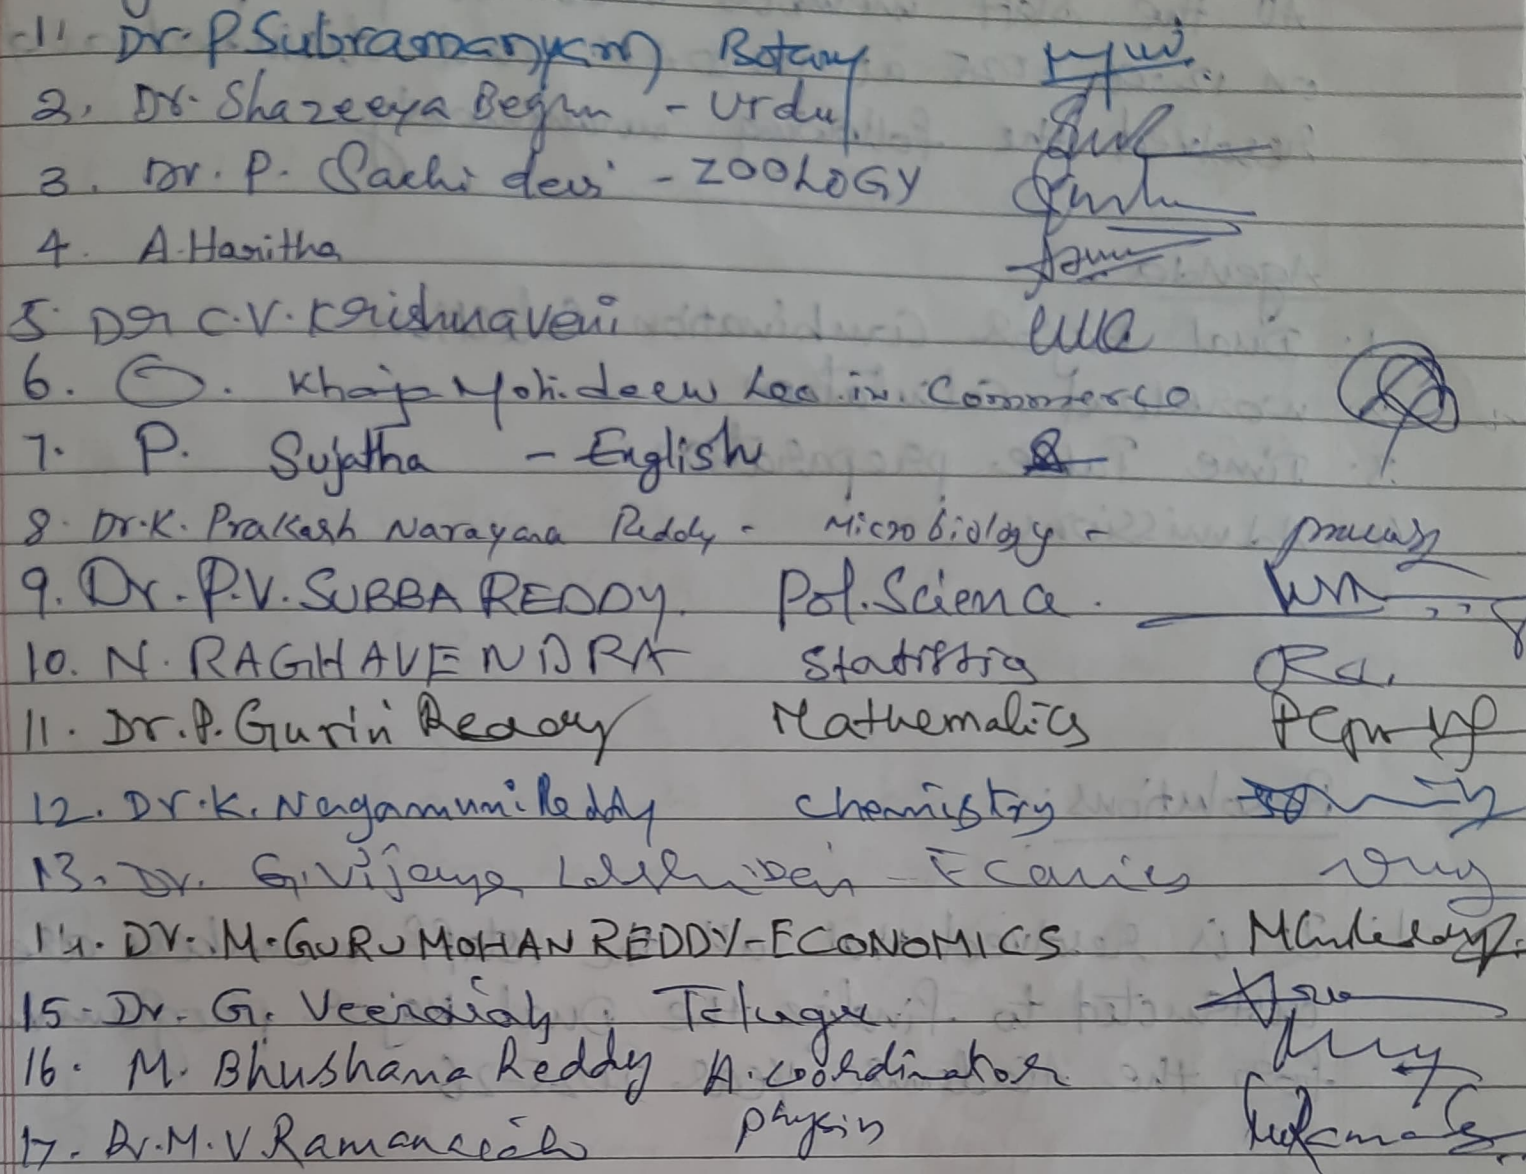 1. Dr. P. Subramanyam Botany
2. Dr. Shazeeya Begum - Urdu
3. Dr. P. Sachi devi - ZOOLOGY
4. A. Haritha
5. Dr C.V. Krishnaveni
6. Khaja Mohideen Lec. in. Commerce
7. P. Sujatha - English
8. Dr. K. Prakash Narayana Reddy - Microbiology -
9. Dr. P.V. SUBBA REDDY. Pol. Science.
10. N. RAGHAVENDRA Statistics
11. Dr. P. Gurivi Reddy Mathematics
12. Dr. K. Nagamuni Reddy Chemistry
13. Dr. G. Vijaya
14. Dr. M. GURU MOHAN REDDY - ECONOMICS
15. Dr. G. Veeraiah, Telugu
16. M. Bhushana Reddy A. coordinator
17. Dr. M. V. Ramanaiah physics